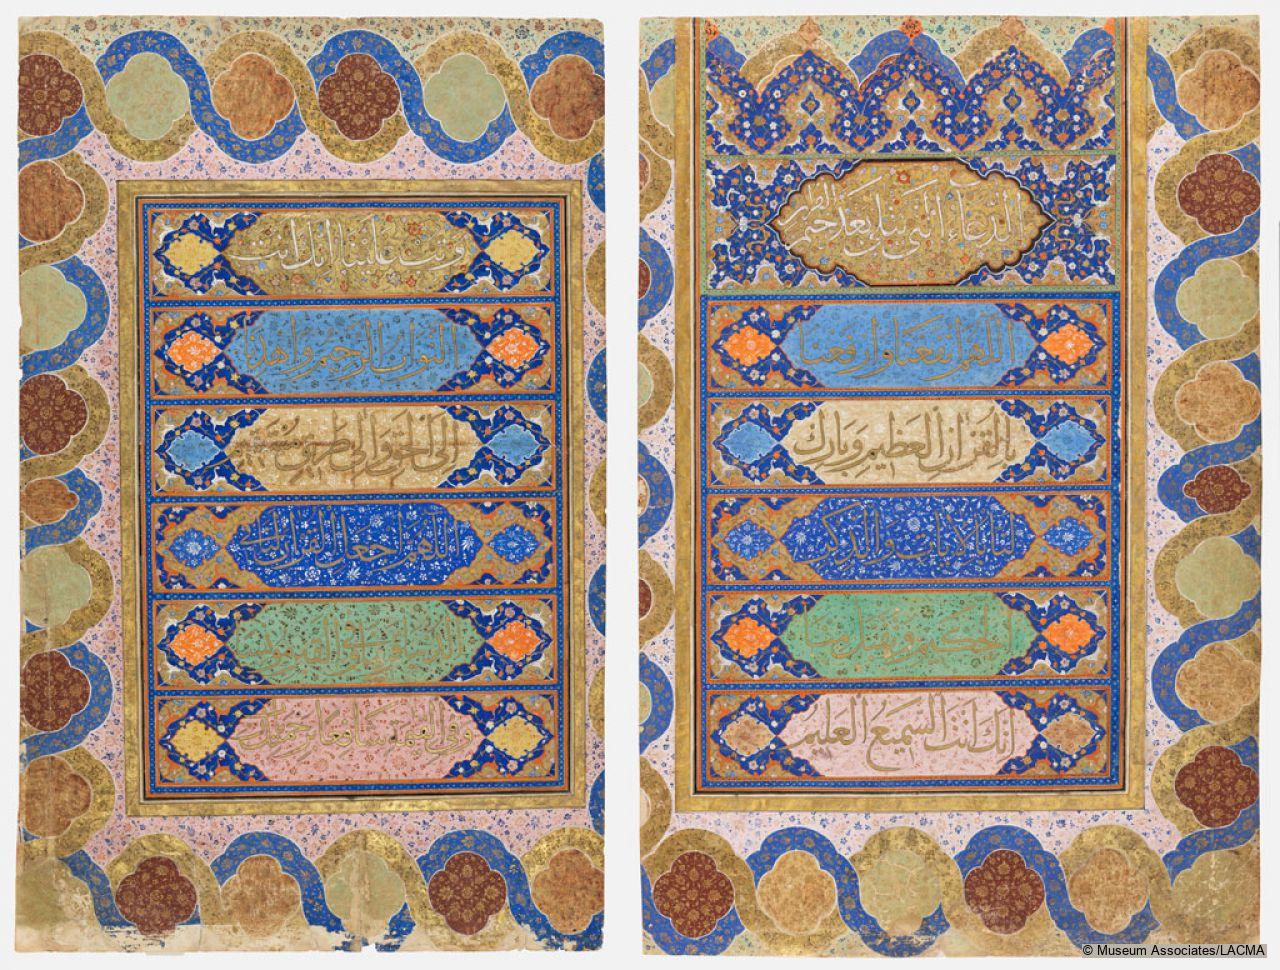 الدعاء يتلى بعد ختم
اللهم انفعنا وارفعنا
بالقرآن العظيم وبارك
لنا بالآيات والذكر
الحكيم وتقبل منا
انك انت السميع العليم
وتب علينا انك انت
التواب الرحيم واهدنا
الى الحق والى طريق مستقيم
اللهم اجعل القرآن
وفي القبر مونسا
وفي القيمة شافعا
© Museum Associates/LACMA